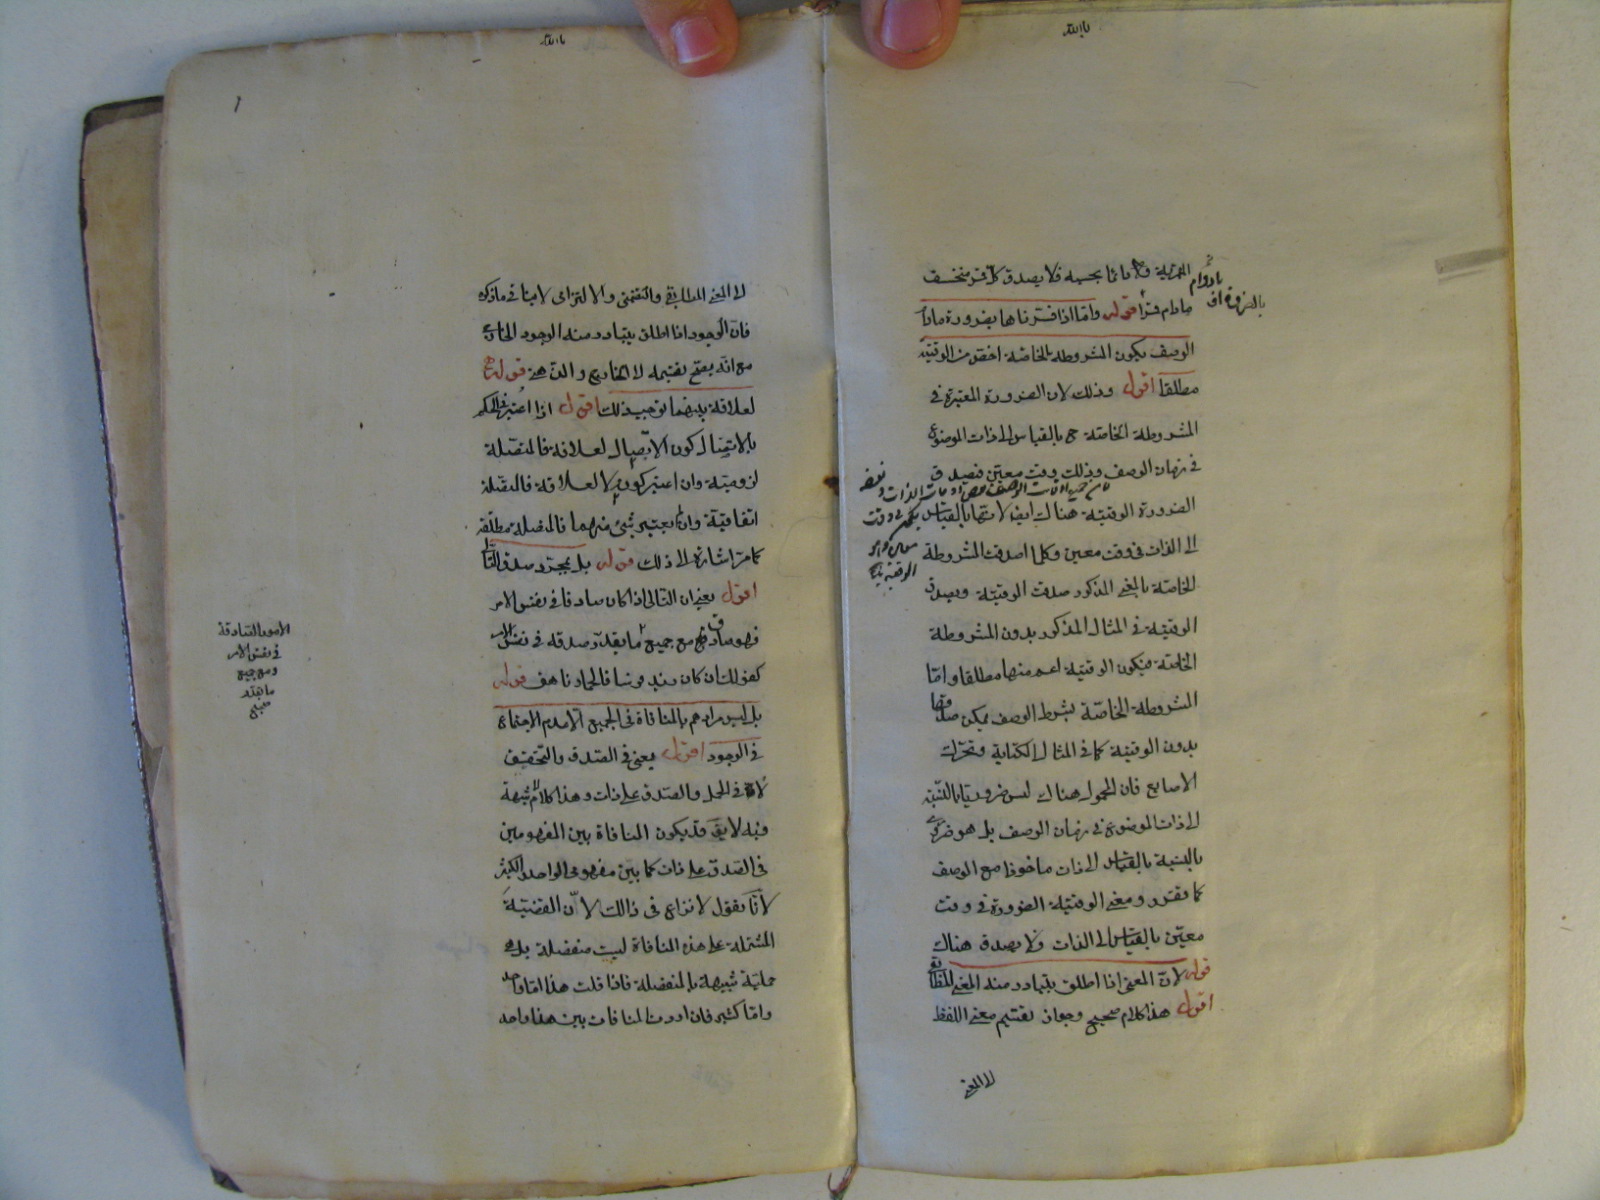 يا الله
القمرية ولا دائما بحسبه فلا يصدق كل قمر منخسف
بالضرورة او بالدوام
مادام قمرا قوله واما اذا فسرناها بضرورة مادام
الوصف يكون المشروطة الخاصة اخص من الوقتية
مطلقا اقول وذلك لان الضرورة المعتبرة في
المشروطة الخاصة ح بالقياس الى ذات الموضوع
في زمان الوصف وذلك وقت معين فيصدق
الضرورة الوقتية هناك ايضا لانتهائها بالقياس
الى الذات في وقت معين وكلما صدقت المشروطة
الخاصة بالمعنى المذكور صدقت الوقتية ويصدق
الوقتية في المثال المذكور بدون المشروطة
الخاصة فيكون الوقتية اعم منها مطلقا واما
المشروطة الخاصة بشرط الوصف يمكن صدقها
بدون الوقتية كما في المثال الكتابة وتحرك
الاصابع فان المحمول هناك ليس ضروريا بالنسبة
الى ذات الموضوع في زمان الوصف بل هو ضروري
بالنسبة بالقياس الى ذات ماخوذا مع الوصف
كما تقرر ومعنى الوقتية الضرورة في وقت
معين بالقياس الى الذات ولا يصدق هناك
قوله لان المعنى اذا اطلق يتبادر منه المعنى المطابقي
اقول هذا كلام صحيح وجواز تقسيم معنى اللفظ
الى المعنى
يا الله
الى المعنى المطابقي والتضمني والالتزامي لا ينافي ما ذكره
فان الوجود اذا اطلق يتبادر منه الوجود الخارجي
مع انه يصح تقسيمه الى الخارجي والذهني قوله
لعلاقة بينهما توجب ذلك اقول اذا اعتبر في الحكم
بالاتصال كون الاتصال لعلاقة فالمتصلة
لزومية وان اعتبر كونه لا لعلاقة فالمتصلة
اتفاقية وان لم يعتبر شيئ منهما فالمتصلة مطلقة
كما مر اشارة الى ذلك قوله بل بمجرد صدق التالي
اقول يعني ان التالي اذا كان صادقا في نفس الامر
فهو صادق مع جميع ما يقدر صدقه في نفس الامر
كقولك ان كان زيد فرسا فالحمار ناهق قوله
بل ليس مرادهم بالمنافاة في الجميع الا عدم الاجتماع
في الوجود اقول يعني في الصدق والتحقيق
لا في الحمل والصدق على ذات وهذا كلام لا شبهة
فيه لا يقال قد يكون المنافاة بين المفهومين
في الصدق على ذات كما بين مفهومي الواحد والكثير
لانا نقول لا نزاع في ذالك لان القضية
المشتملة على هذه المنافاة ليست منفصلة بل هي
حملية شبيهة بالمنفصلة فاذا قلت هذا اما واحد
واما كثير فان اردت المنافات بين هذا واحد
الامور الصادقة
في نفس الامر
ومع جميع